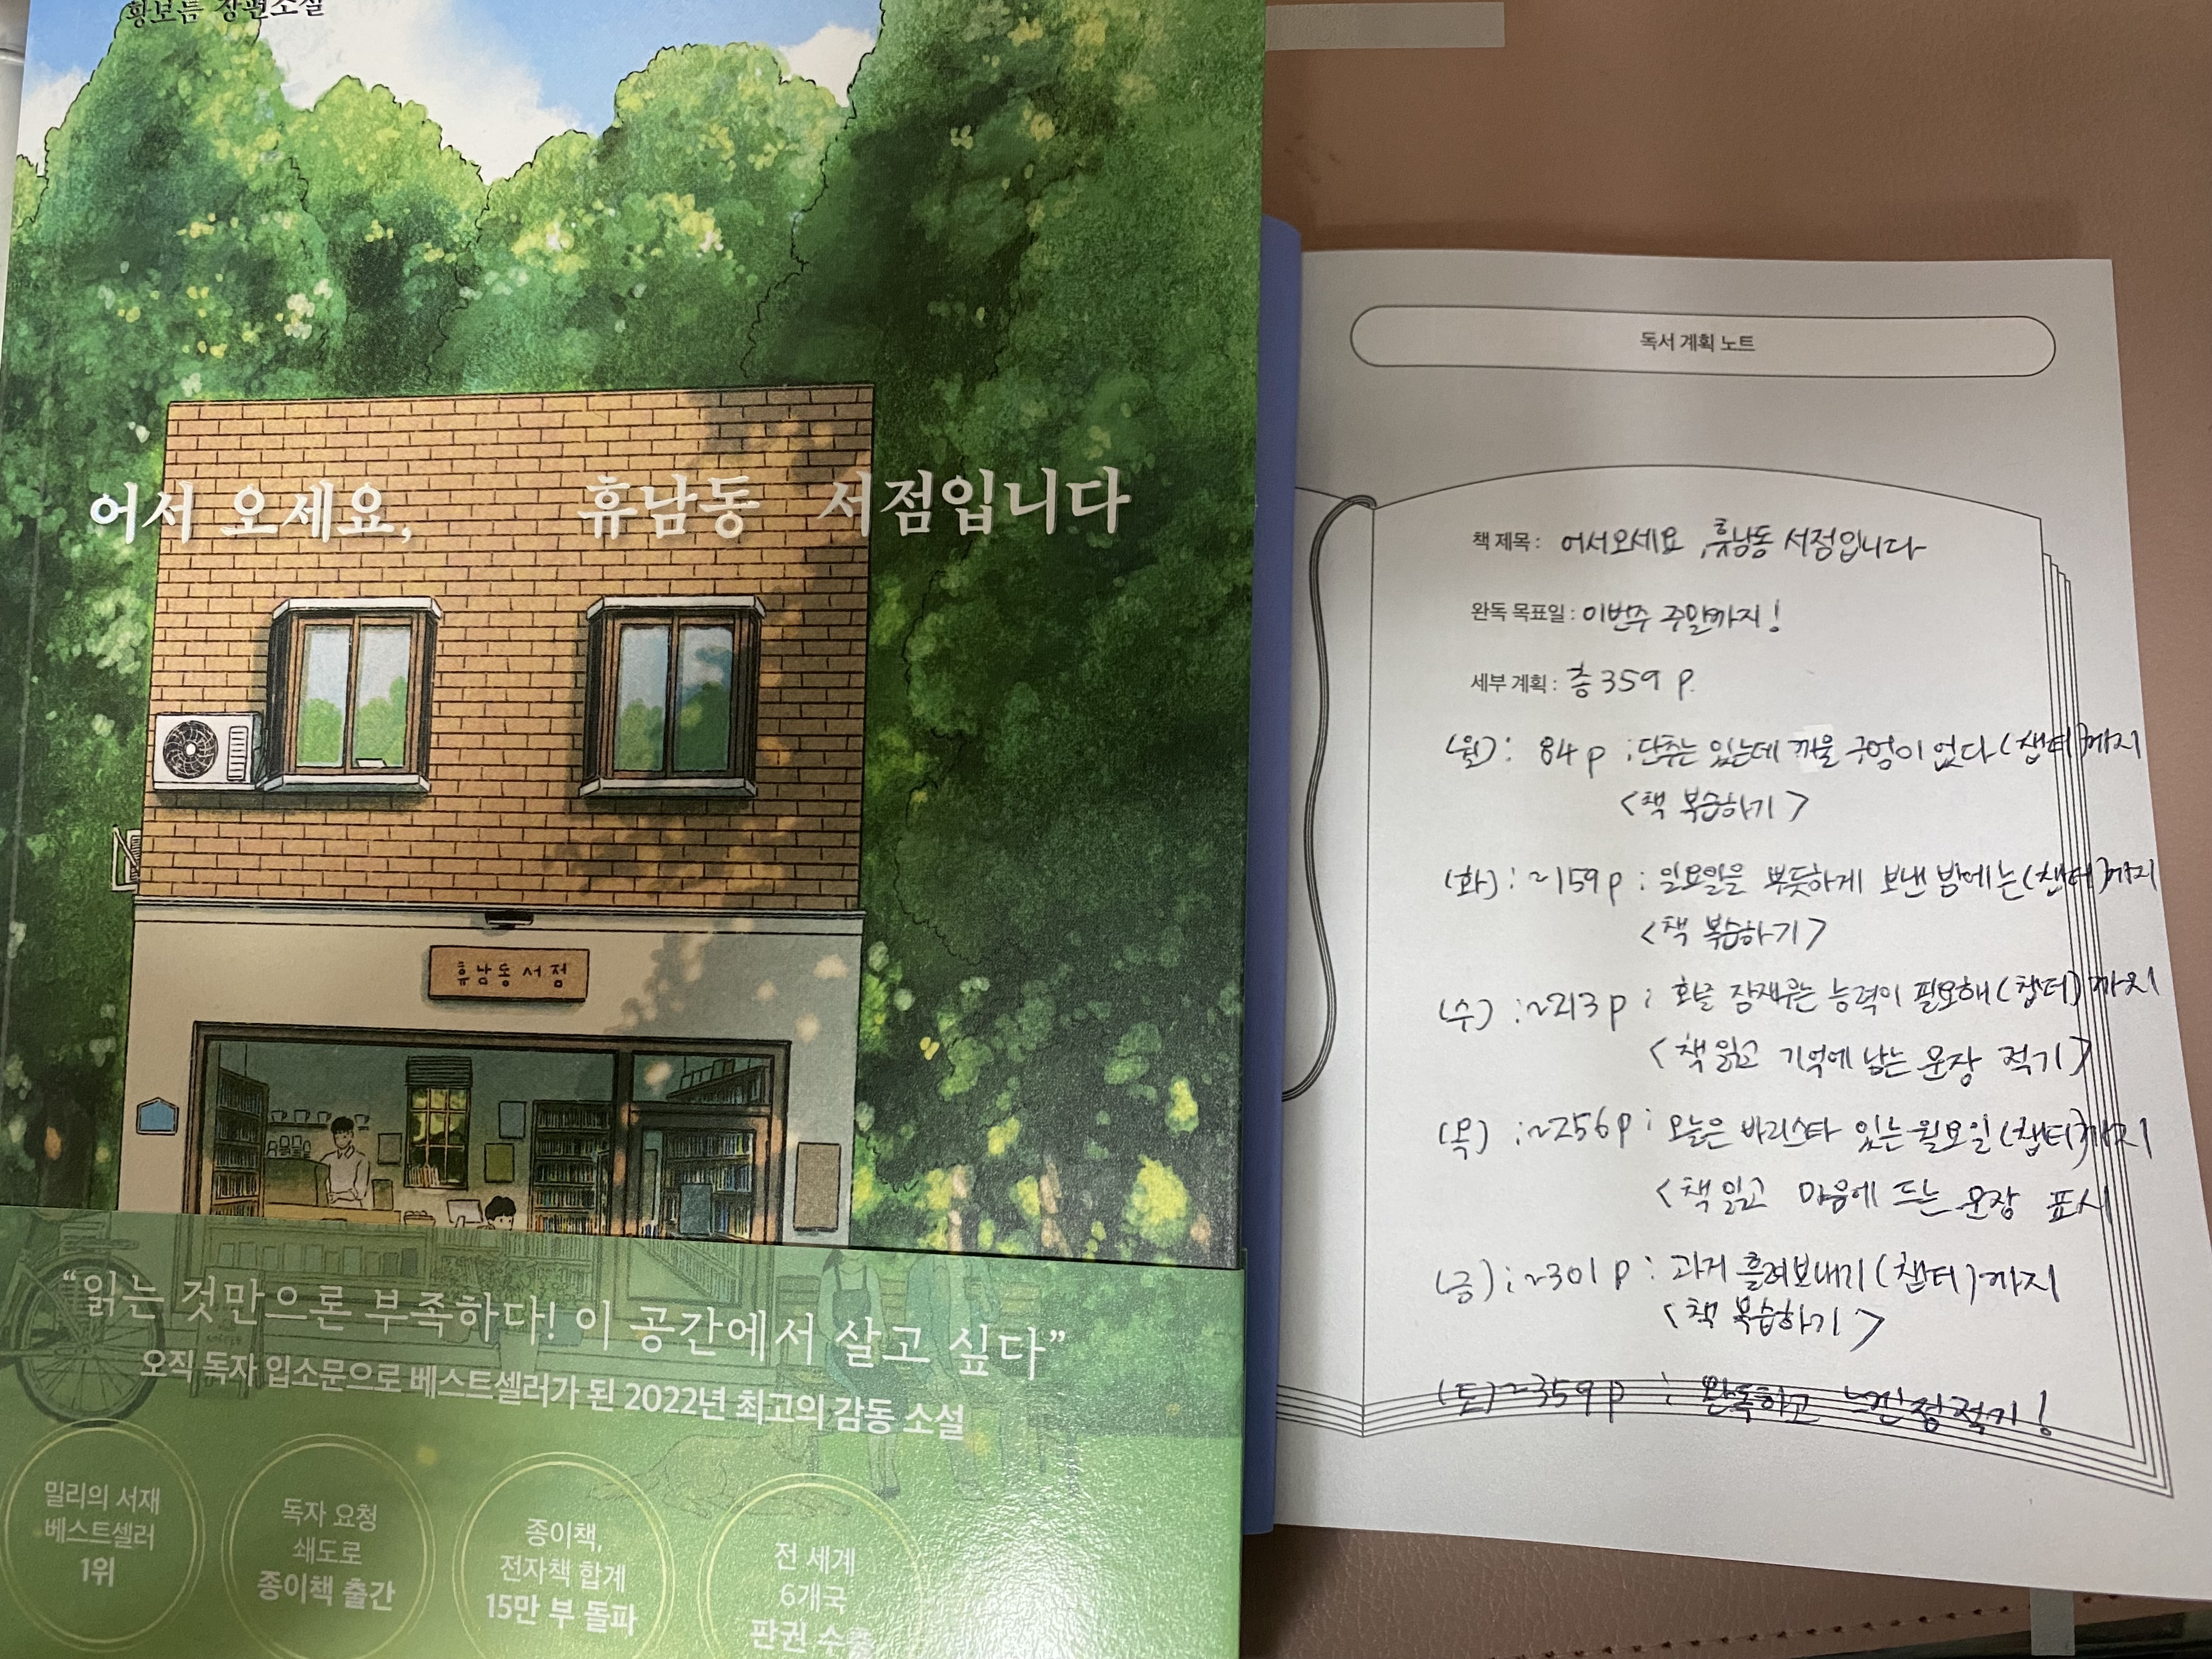 황보름 장편소설
어서 오세요, 휴남동 서점입니다
휴남동 서점
“읽는 것만으론 부족하다! 이 공간에서 살고 싶다”
오직 독자 입소문으로 베스트셀러가 된 2022년 최고의 감동 소설
밀리의 서재
베스트셀러
1위
독자 요청
쇄도로
종이책 출간
종이책,
전자책 합계
15만 부 돌파
전 세계
6개국
판권 수출
독서 계획 노트
책 제목 : 어서오세요 ,휴남동 서점입니다
완독 목표일 : 이번주 주말까지!
세부 계획 : 총 359 p.
(월) : 84 p ; 단추는 있는데 끼울 구멍이 없다 (챕터)까지
<책 복습하기>
(화) : ~159 p : 일요일을 뿌듯하게 보낸 밤에는 (챕터)까지
<책 복습하기>
(수) : ~213 p ; 화를 잠재우는 능력이 필요해 (챕터)까지
<책 읽고 기억에 남는 문장 적기>
(목) : ~256 p : 오늘은 바리스타 있는 월요일 (챕터)까지
<책 읽고 마음에 드는 문장 표시
(금) ; ~301 p : 과거 흘려보내기 (챕터)까지
<책 복습하기>
(토) ~359 p : 완독하고 느낀점적기!